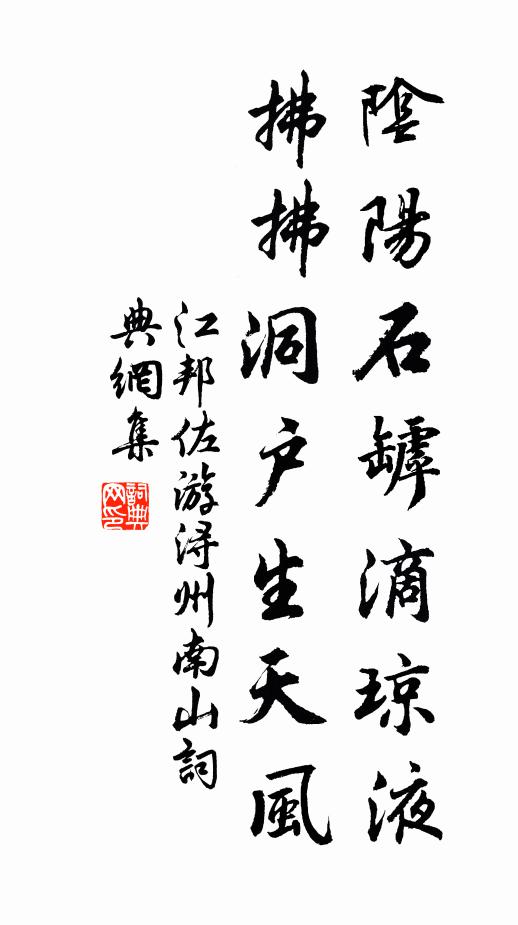 陰陽石罅滴琼液
拂拂洞户生天風
江邦佐游潯州南山詞
典網集
詞典网印